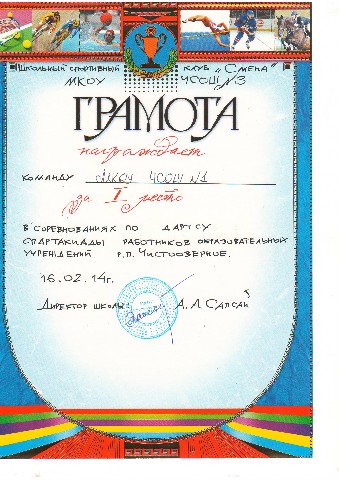 Школьный спортивный клуб „Смена"
МКОУ ЧСОШ №3
ГРАМОТА
награждает
команду МКОУ ЧСОШ №1
за I место
в соревнованиях по дартсу
спартакиады работников образовательных
учреждений р.п. Чистоозерное.
16.02.14г.
Директор школы А.Л Сапсай